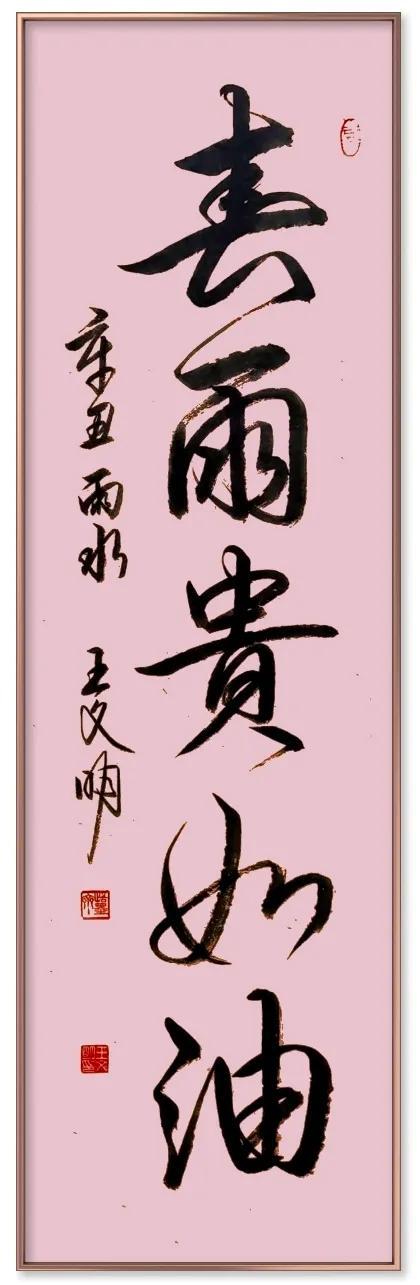 春雨貴如油
辛丑雨水 王文明